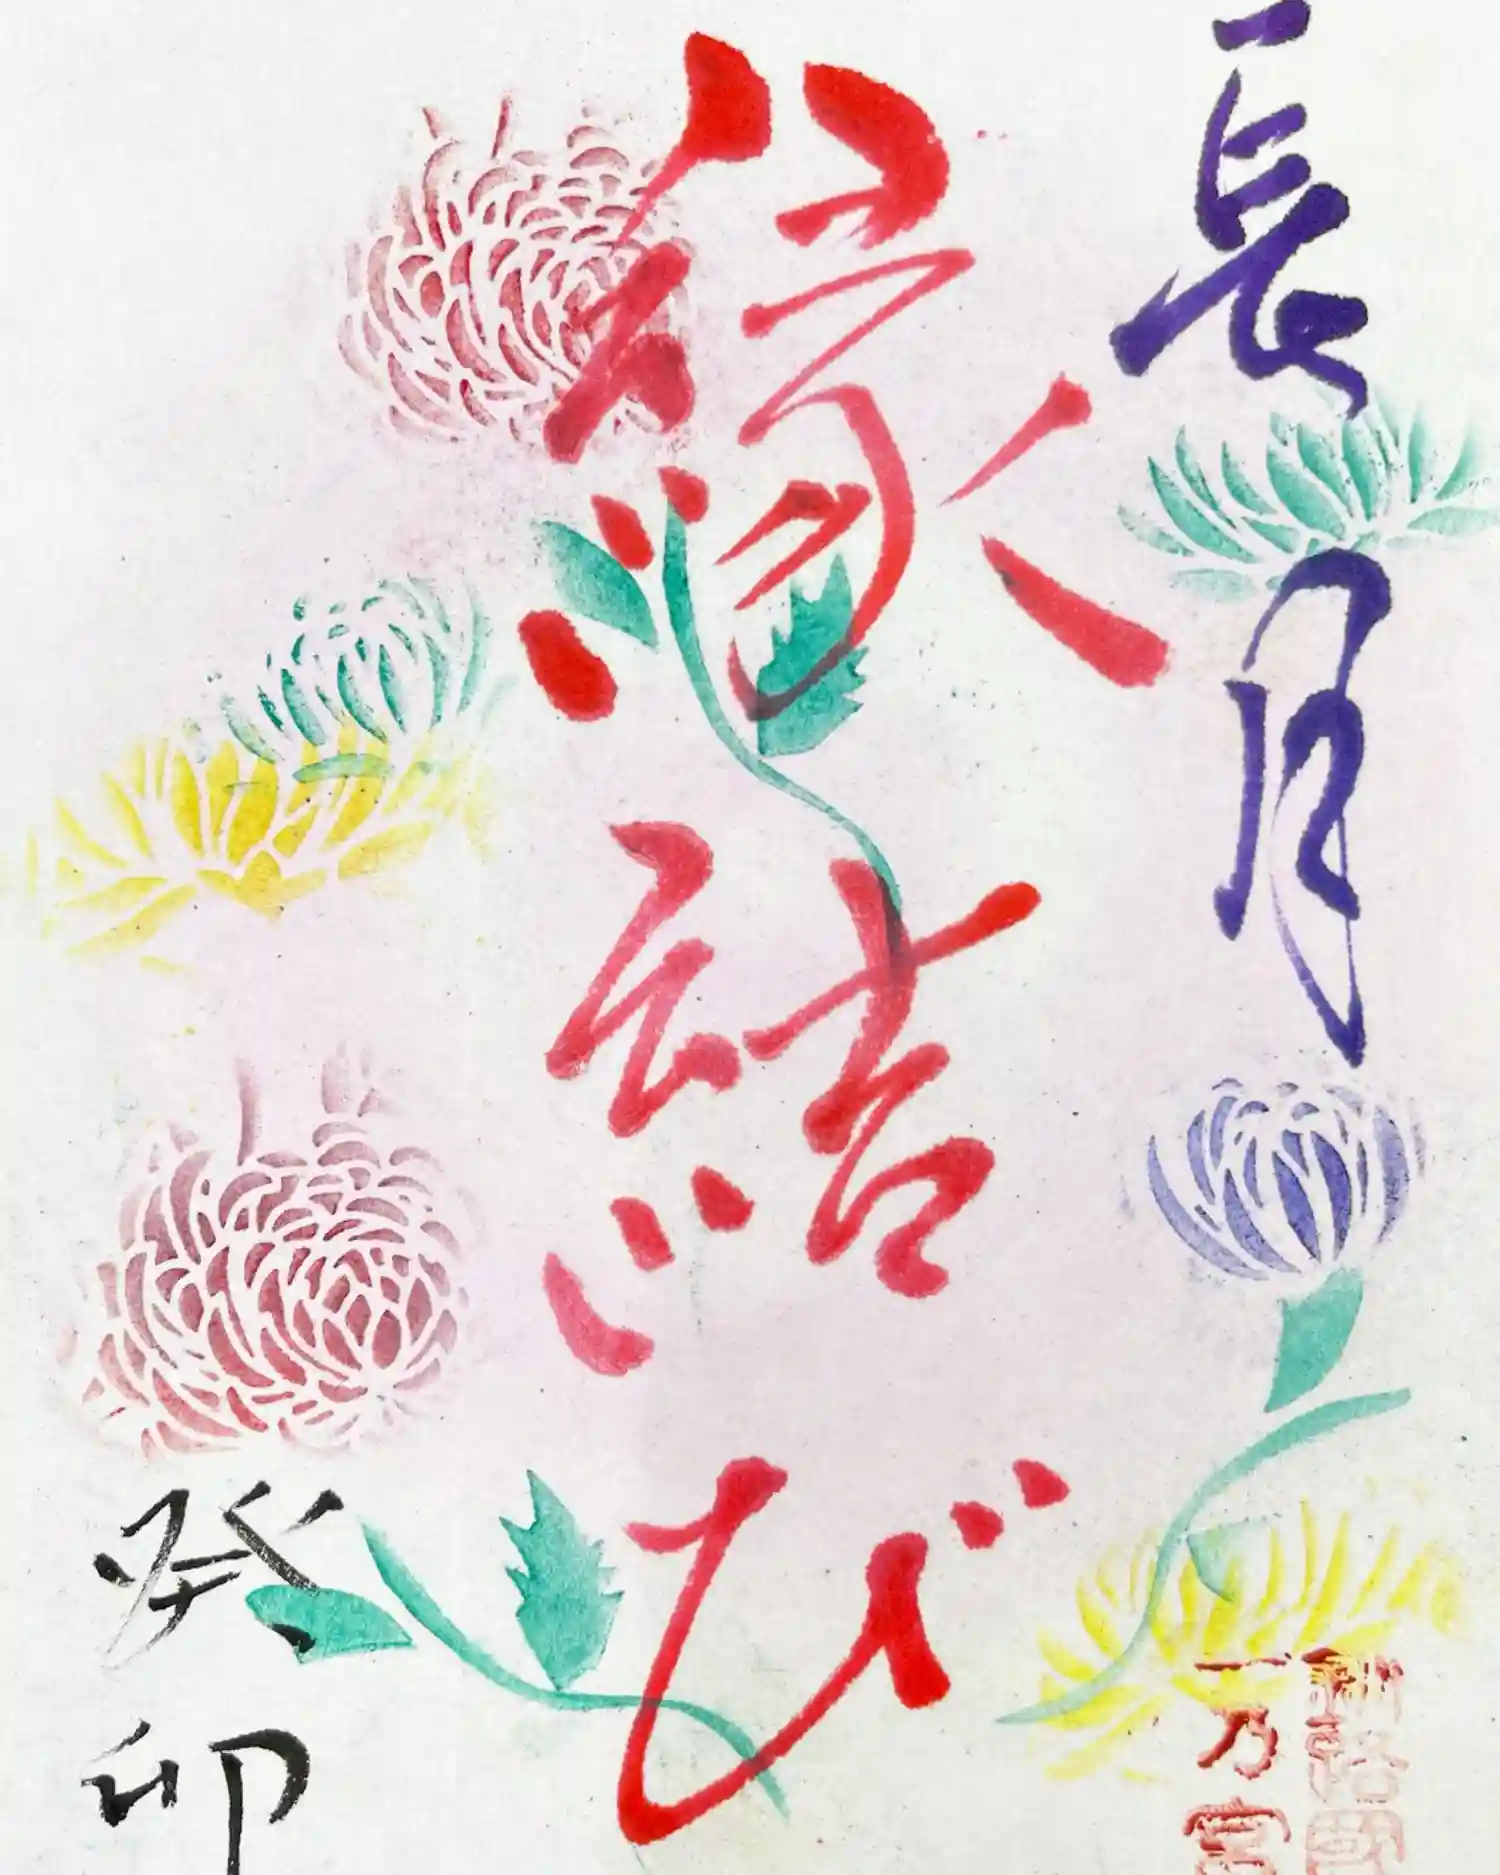 長月
縁結び
癸卯
一乃宮